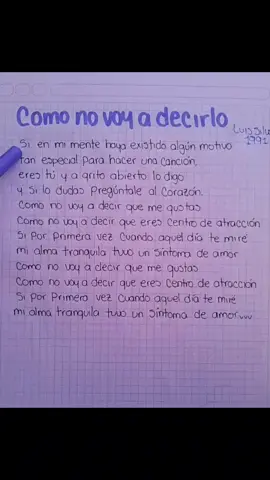 Como no voy a decirlo
Luis Silva
1991
Si en mi mente haya existido algún motivo
tan especial para hacer una canción,
eres tú y a grito abierto lo digo
y si lo dudas Pregúntale al Corazón.
Como no voy a decir que me gustas
Como no voy a decir que eres Centro de atracción
Si Por Primera vez Cuando aquel día te miré
mi alma tranquila tuvo un síntoma de amor
Como no voy a decir que me gustas
Como no voy a decir que eres Centro de atracción
Si Por Primera vez Cuando aquel día te miré
mi alma tranquila tuvo un síntoma de amor...